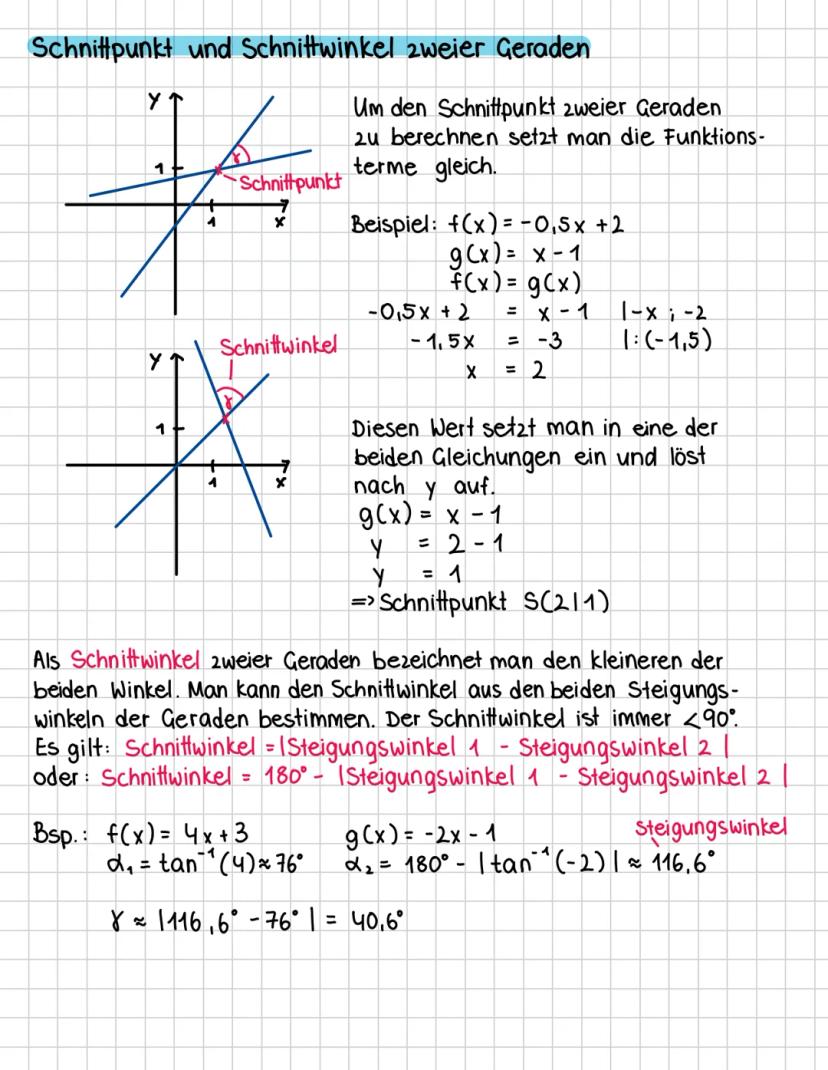 Schnittpunkt und Schnittwinkel zweier Geraden
y
1
Schnittpunkt
γ
1
x
Um den Schnittpunkt zweier Geraden
zu berechnen setzt man die Funktions-
terme gleich.
Beispiel: f(x) = -0,5x + 2
g(x) = x - 1
f(x) = g(x)
-0,5x + 2 = x - 1 |-x ; -2
-1,5x = -3 |:(-1,5)
x = 2
y
Schnittwinkel
γ
1
1
x
Diesen Wert setzt man in eine der
beiden Gleichungen ein und löst
nach y auf.
g(x) = x - 1
y = 2 - 1
y = 1
=> Schnittpunkt S(2|1)
Als Schnittwinkel zweier Geraden bezeichnet man den kleineren der
beiden Winkel. Man kann den Schnittwinkel aus den beiden Steigungs-
winkeln der Geraden bestimmen. Der Schnittwinkel ist immer <90°.
Es gilt: Schnittwinkel = |Steigungswinkel 1 - Steigungswinkel 2 |
oder: Schnittwinkel = 180° - |Steigungswinkel 1 - Steigungswinkel 2 |
Bsp.: f(x) = 4x + 3 g(x) = -2x - 1 Steigungswinkel
α₁ = tan⁻¹(4) ≈ 76° α₂ = 180° - |tan⁻¹(-2)| ≈ 116,6°
γ ≈ |116,6° - 76° | = 40,6°